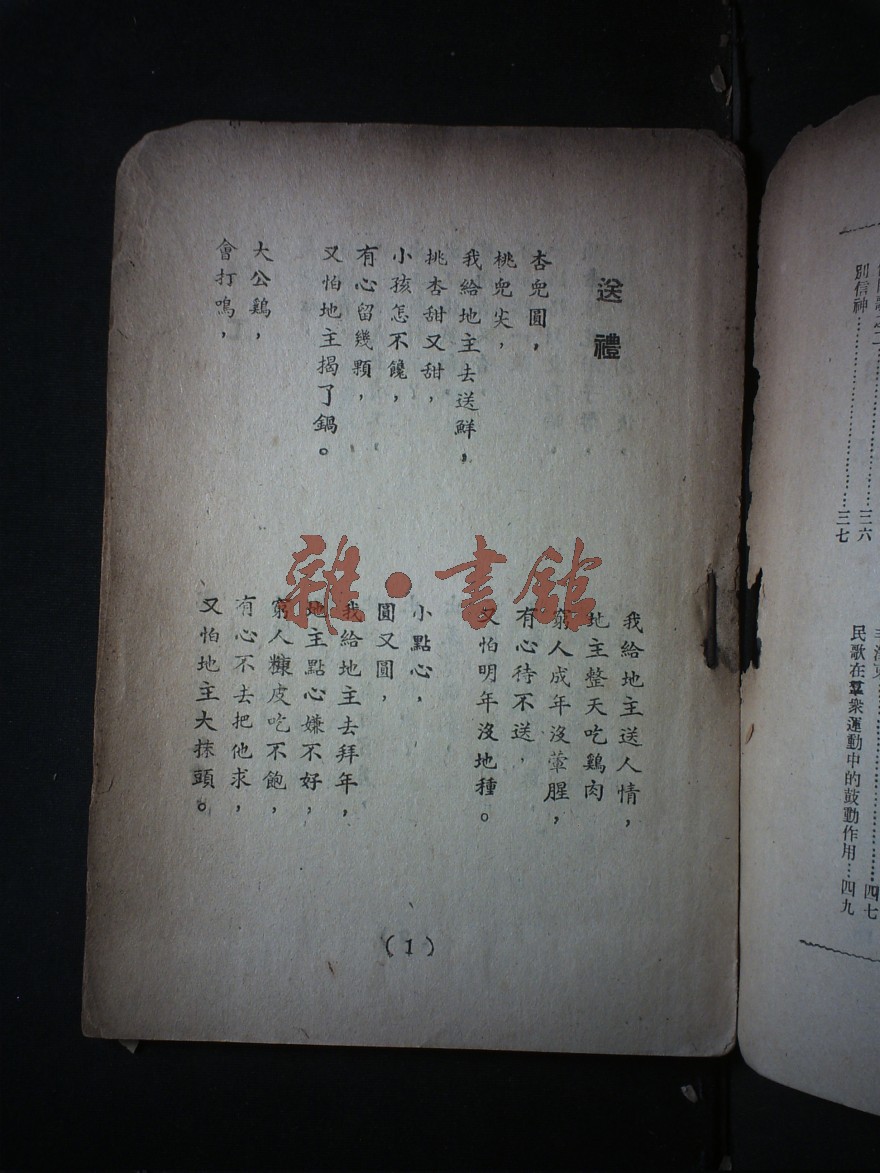 送禮
杏兒圓，
桃兒尖，
我給地主去送鮮，
桃杏甜又甜，
小孩怎不饞，
有心留幾顆，
又怕地主揭了鍋。
大公鷄，
會打鳴，
我給地主送人情，
地主整天吃鷄肉
窮人成年沒葷腥，
有心待不送，
又怕明年沒地種。
小點心，
圓又圓，
我給地主去拜年，
地主點心嫌不好，
窮人糠皮吃不飽，
有心不去把他求，
又怕地主大抹頭。
(1)
雜·書館
三六
別信神…………三七
四七
民歌在羣衆運動中的鼓動作用…四九